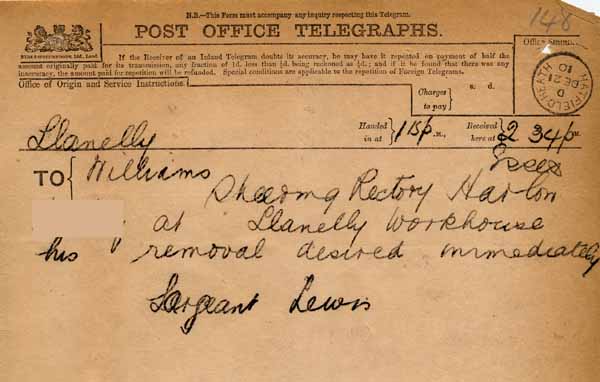 N.B.—This Form must accompany any inquiry respecting this Telegram.
148
POST OFFICE TELEGRAPHS.
If the Receiver of an Inland Telegram doubts its accuracy, he may have it repeated on payment of half the
amount originally paid for its transmission, any fraction of 1d. less than ½d. being reckoned as ½d.; and if it be found that there was any
inaccuracy, the amount paid for repetition will be refunded. Special conditions are applicable to the repetition of Foreign Telegrams.
Office of Origin and Service Instructions.
Charges to pay
s. d.
HATFIELD HEATH
D
DE 21
10
Llanelly
Handed in at
1 15 p M.,
Received here at
2 34 p M.
Essex
TO
Williams
Sheering Rectory Harlow
at Llanelly workhouse
his removal desired immediately
Sergeant Lewis